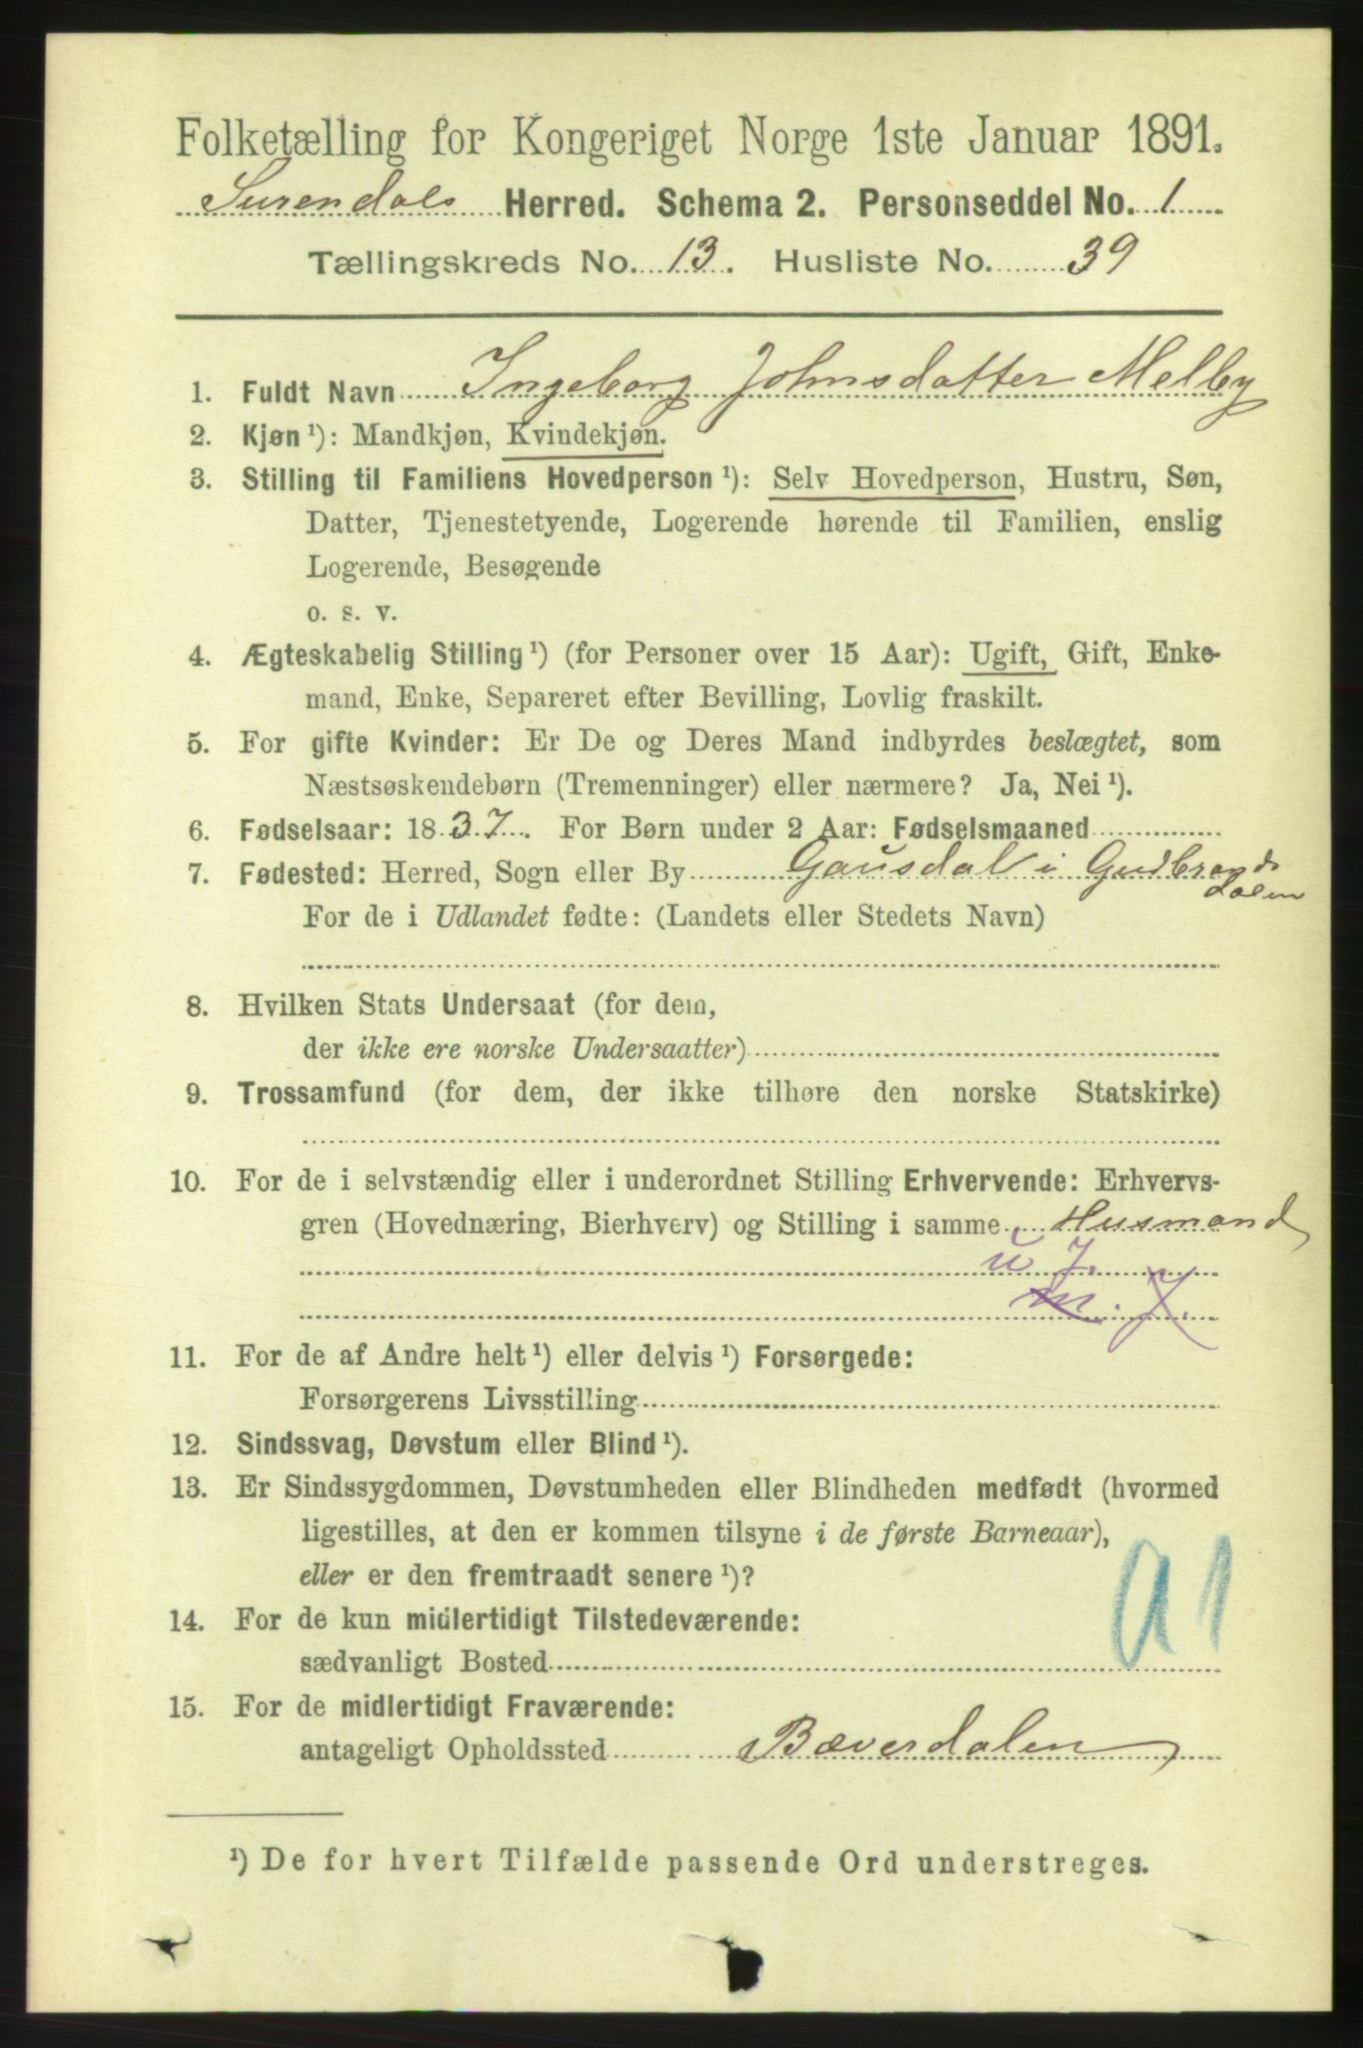 Folketælling for Kongeriget Norge 1ste Januar 1891.
Surendals Herred. Schema 2. Personseddel No. 1
Tællingskreds No. 13. Husliste No. 39
1. Fuldt Navn Ingeborg Johnsdatter Melby
2. Kjøn ¹): Mandkjøn, Kvindekjøn.
3. Stilling til Familiens Hovedperson ¹): Selv Hovedperson, Hustru, Søn,
Datter, Tjenestetyende, Logerende hørende til Familien, enslig
Logerende, Besøgende
o. s. v.
4. Ægteskabelig Stilling ¹) (for Personer over 15 Aar): Ugift, Gift, Enke-
mand, Enke, Separeret efter Bevilling, Lovlig fraskilt.
5. For gifte Kvinder: Er De og Deres Mand indbyrdes beslægtet, som
Næstsøskendebørn (Tremenninger) eller nærmere? Ja, Nei ¹).
6. Fødselsaar: 1837. For Børn under 2 Aar: Fødselsmaaned
7. Fødested: Herred, Sogn eller By Gausdal i Gudbrands
dalen
For de i Udlandet fødte: (Landets eller Stedets Navn)
8. Hvilken Stats Undersaat (for dem,
der ikke ere norske Undersaatter)
9. Trossamfund (for dem, der ikke tilhøre den norske Statskirke)
10. For de i selvstændig eller i underordnet Stilling Erhvervende: Erhvervs-
gren (Hovednæring, Bierhverv) og Stilling i samme Husmand
u J.
m. J.
11. For de af Andre helt ¹) eller delvis ¹) Forsørgede:
Forsørgerens Livsstilling
12. Sindssvag, Døvstum eller Blind ¹).
13. Er Sindssygdommen, Døvstumheden eller Blindheden medfødt (hvormed
ligestilles, at den er kommen tilsyne i de første Barneaar),
eller er den fremtraadt senere ¹)?
14. For de kun midlertidigt Tilstedeværende:
sædvanligt Bosted
a 1
15. For de midlertidigt Fraværende:
antageligt Opholdssted Bæverdalen
¹) De for hvert Tilfælde passende Ord understreges.